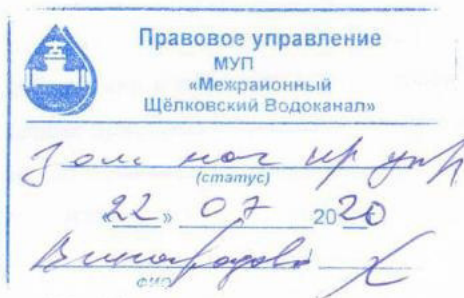 Правовое управление
МУП
«Межрайонный
Щёлковский Водоканал»
Зам нач пр упр
(статус)
«22» 07 2020
Виноградова
ФИО